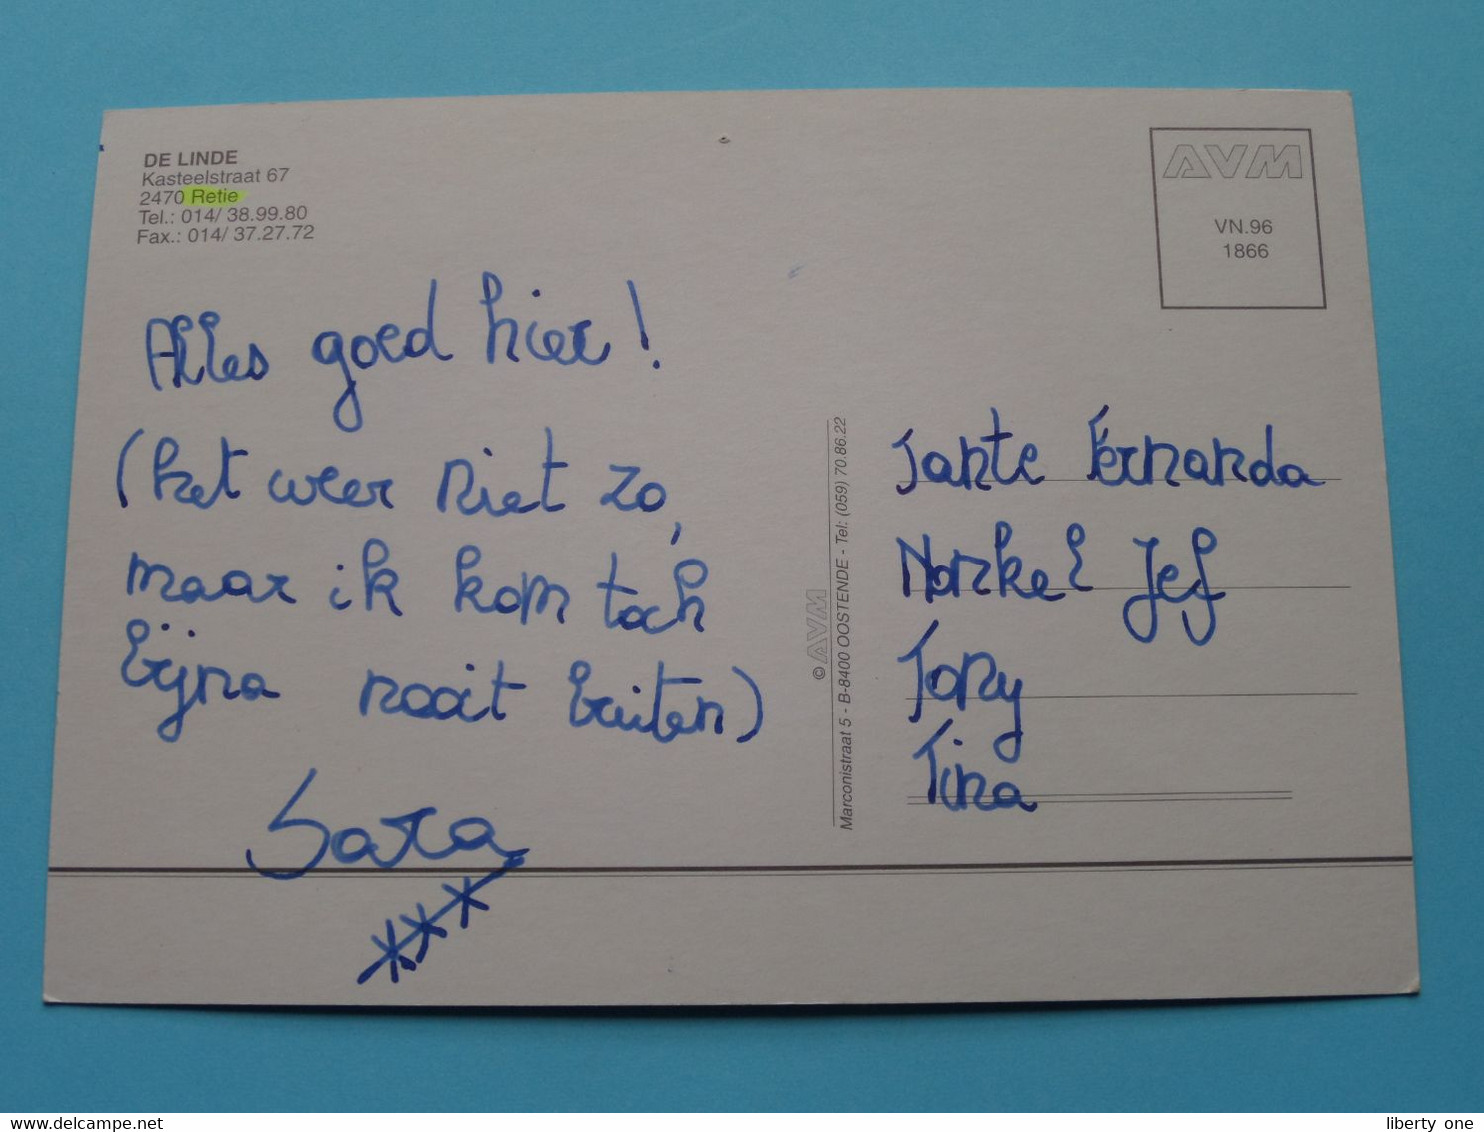 DE LINDE
Kasteelstraat 67
2470 Retie
Tel.: 014/ 38.99.80
Fax.: 014/ 37.27.72
AVM
VN.96
1866
Alles goed hier!
(het weer niet zo,
maar ik kom toch
bijna nooit buiten)
Sara
© AVM
Marconistraat 5 - B-8400 OOSTENDE - Tel: (059) 70.86.22
Tante Fernanda
Nonkel Jef
Tony
Tina
www.delcampe.net
liberty one